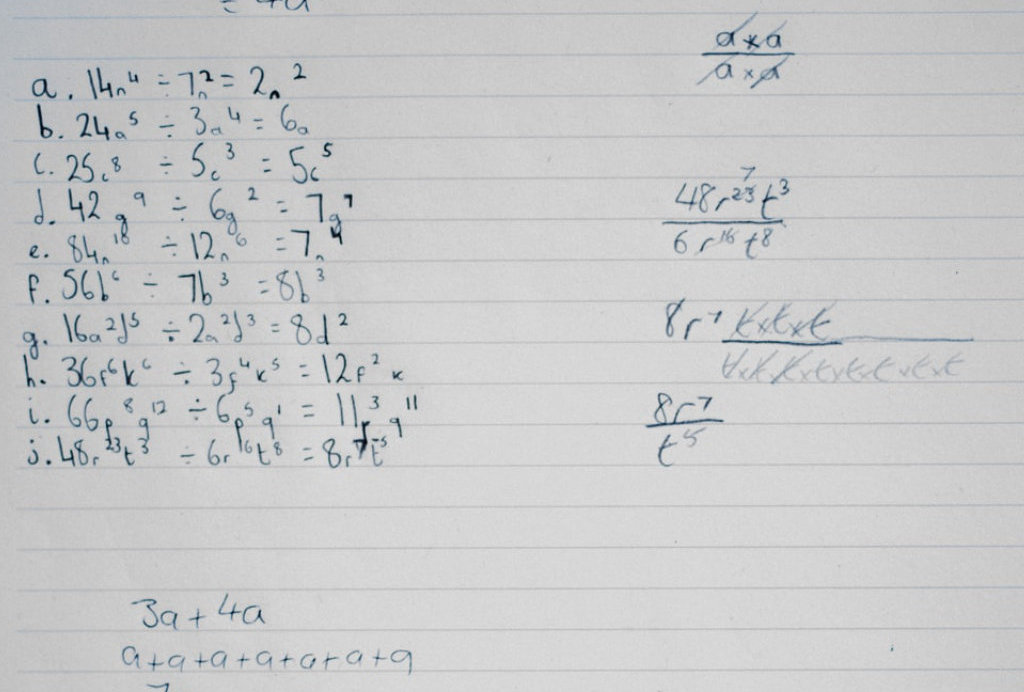 ÷ 4a
a. 14n⁴ ÷ 7n² = 2n²
b. 24a⁵ ÷ 3a⁴ = 6a
c. 25c⁸ ÷ 5c³ = 5c⁵
d. 42g⁹ ÷ 6g² = 7g⁷
e. 84n¹⁰ ÷ 12n⁶ = 7n⁴
f. 56b⁶ ÷ 7b³ = 8b³
g. 16a²d⁵ ÷ 2a²d³ = 8d²
h. 36f⁶k⁶ ÷ 3f⁴k⁵ = 12f²k
i. 66p⁸q¹² ÷ 6p⁵q¹ = 11p³q¹¹
j. 48r²³t³ ÷ 6r¹⁶t⁸ = 8r⁷t⁻⁵
3a + 4a
a+a+a+a+a+a+a
7
a×a
a×a
7
48r²³t³
6r¹⁶t⁸
8r⁷ t×t×t
t×t×t×t×t×t×t×t
8r⁷
t⁵